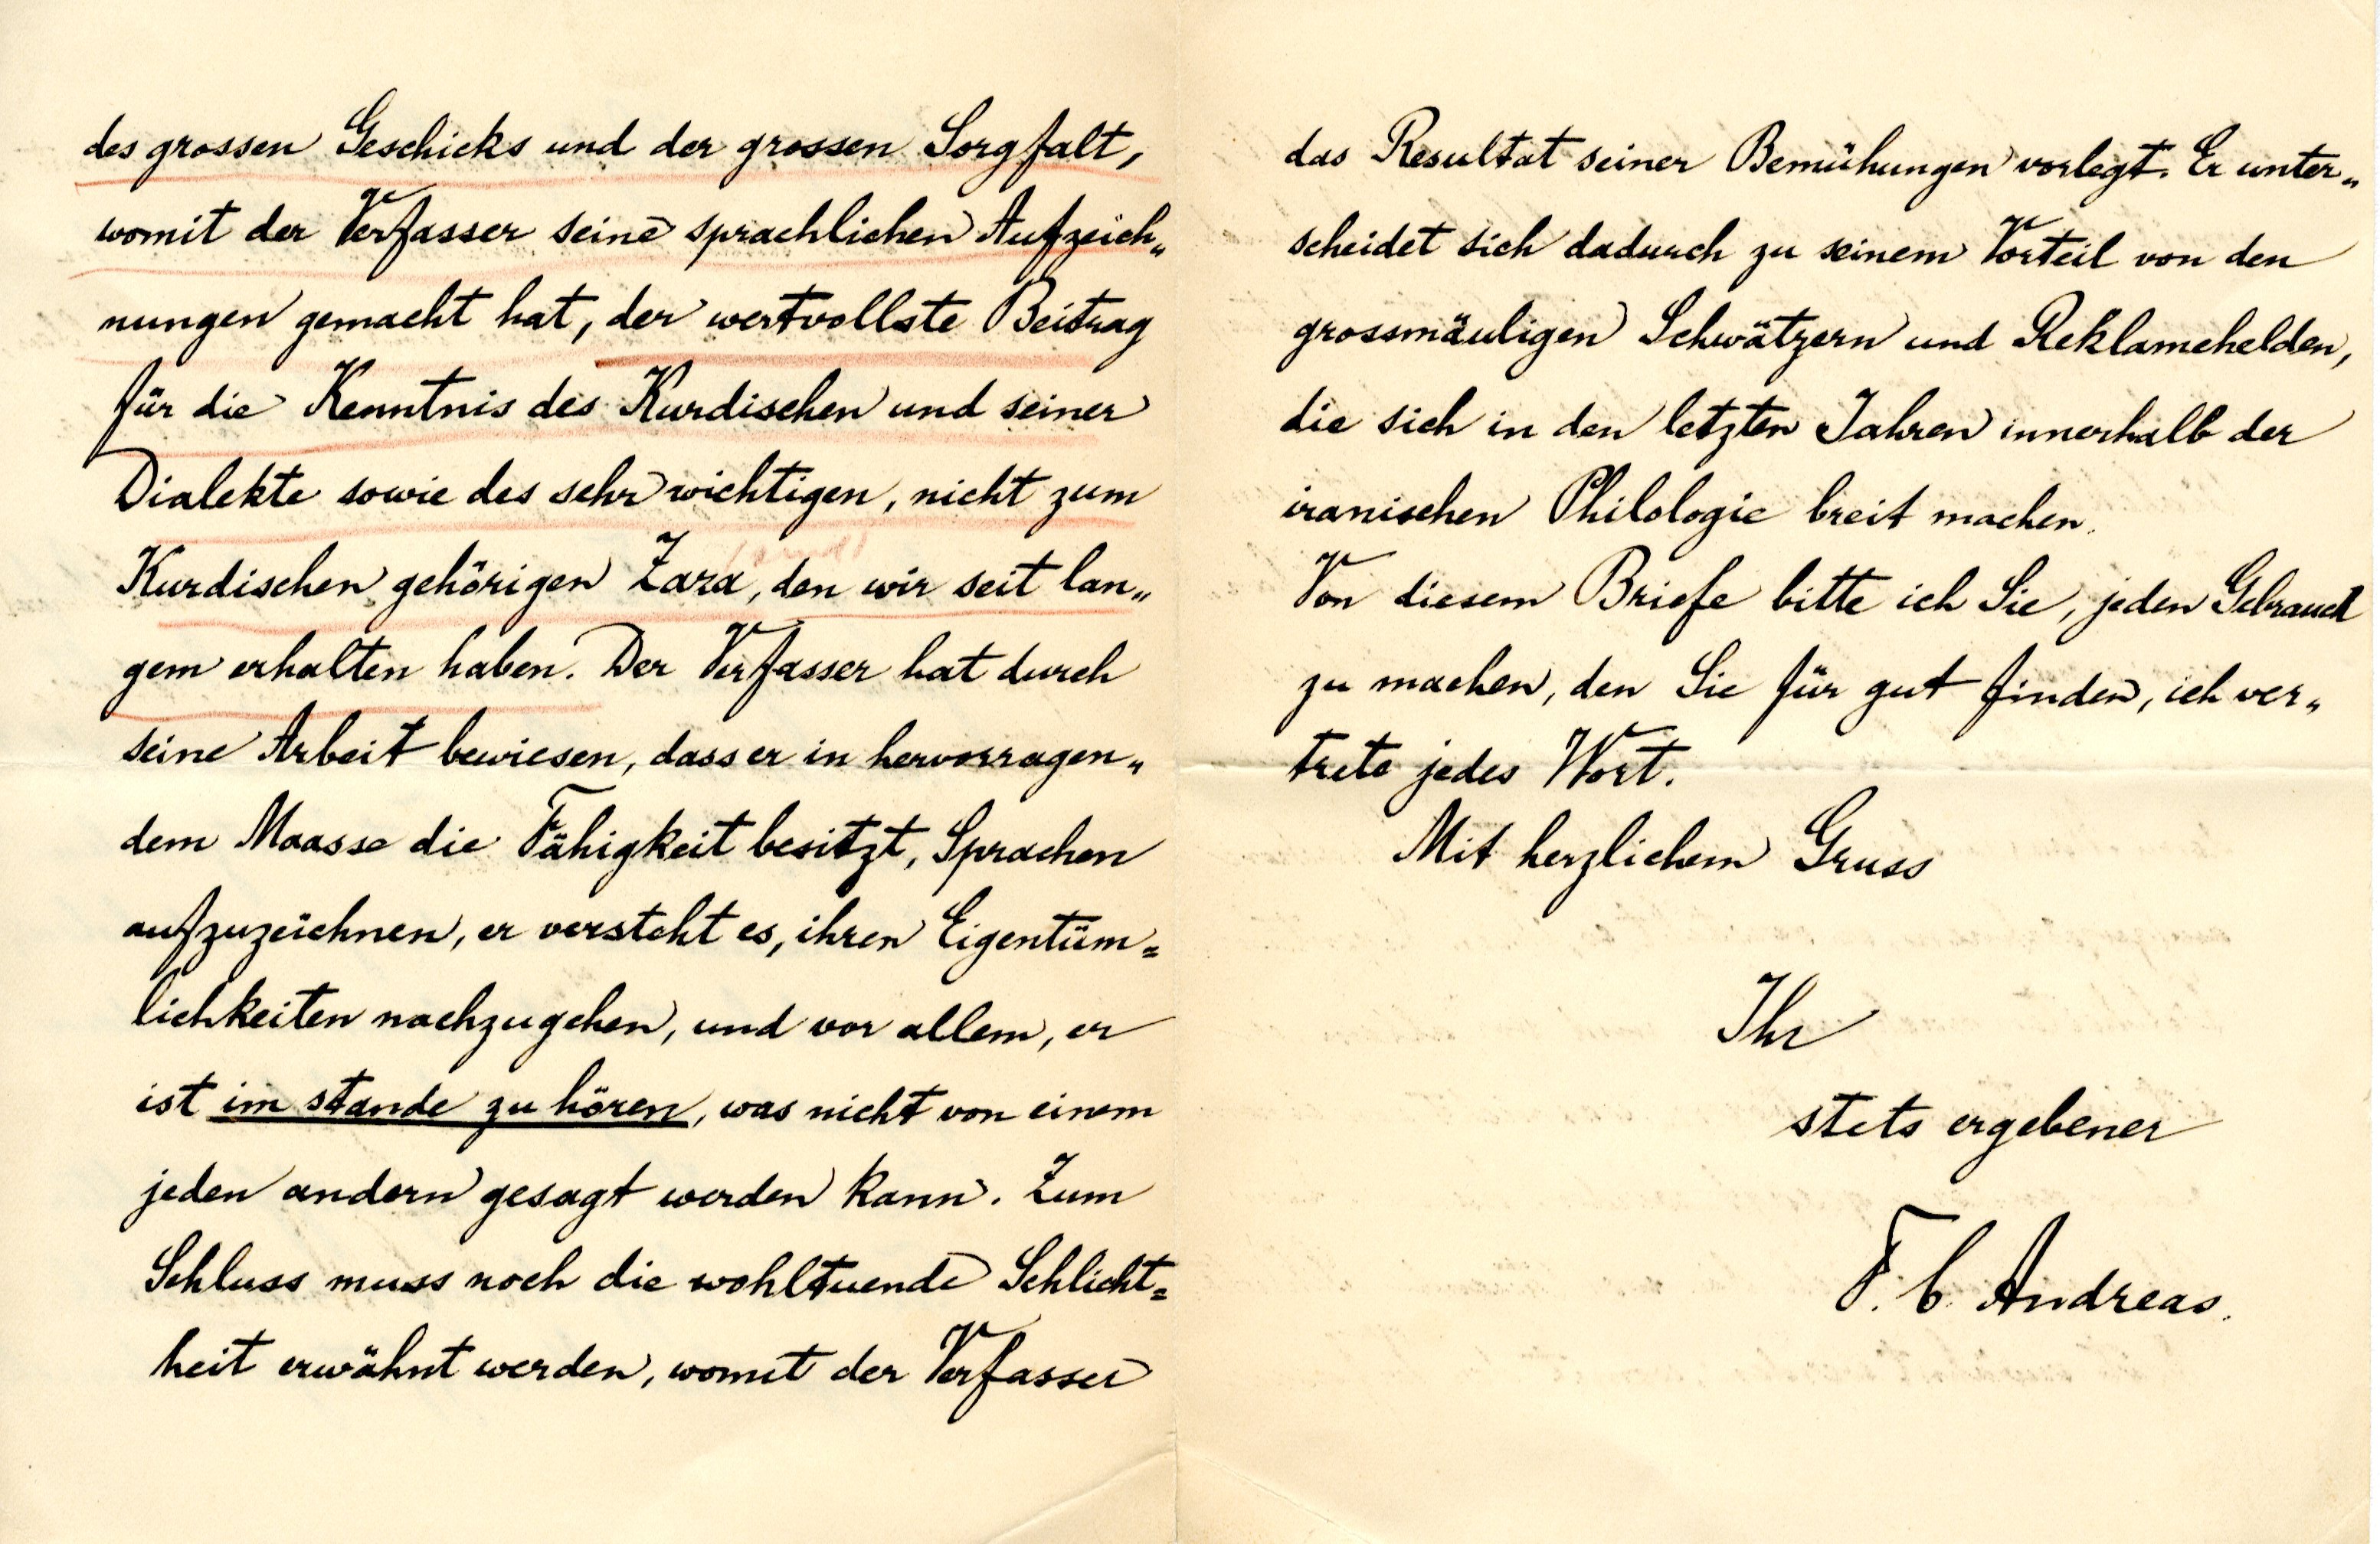 des grossen Geschicks und der grossen Sorgfalt,
womit der Verfasser seine sprachlichen Aufzeich„
nungen gemacht hat, der wertvollste Beitrag
für die Kenntnis des Kurdischen und seiner
Dialekte sowie des sehr wichtigen, nicht zum
Kurdischen gehörigen Zaza, den wir seit lan„
gem erhalten haben. Der Verfasser hat durch
seine Arbeit bewiesen, dass er in hervorragen„
dem Maasse die Fähigkeit besitzt, Sprachen
aufzuzeichnen, er versteht es, ihren Eigentüm=
lichkeiten nachzugehen, und vor allem, er
ist im stande zu hören, was nicht von einem
jeden andern gesagt werden kann. Zum
Schluss muss noch die wohltuende Schlicht=
heit erwähnt werden, womit der Verfasser
das Resultat seiner Bemühungen vorlegt. Er unter„
scheidet sich dadurch zu seinem Vorteil von den
grossmäuligen Schwätzern und Reklamehelden,
die sich in den letzten Jahren innerhalb der
iranischen Philologie breit machen.
Von diesem Briefe bitte ich Sie, jeden Gebrauch
zu machen, den Sie für gut finden, ich ver„
trete jedes Wort.
Mit herzlichem Gruss
Ihr
stets ergebener
F. C. Andreas.